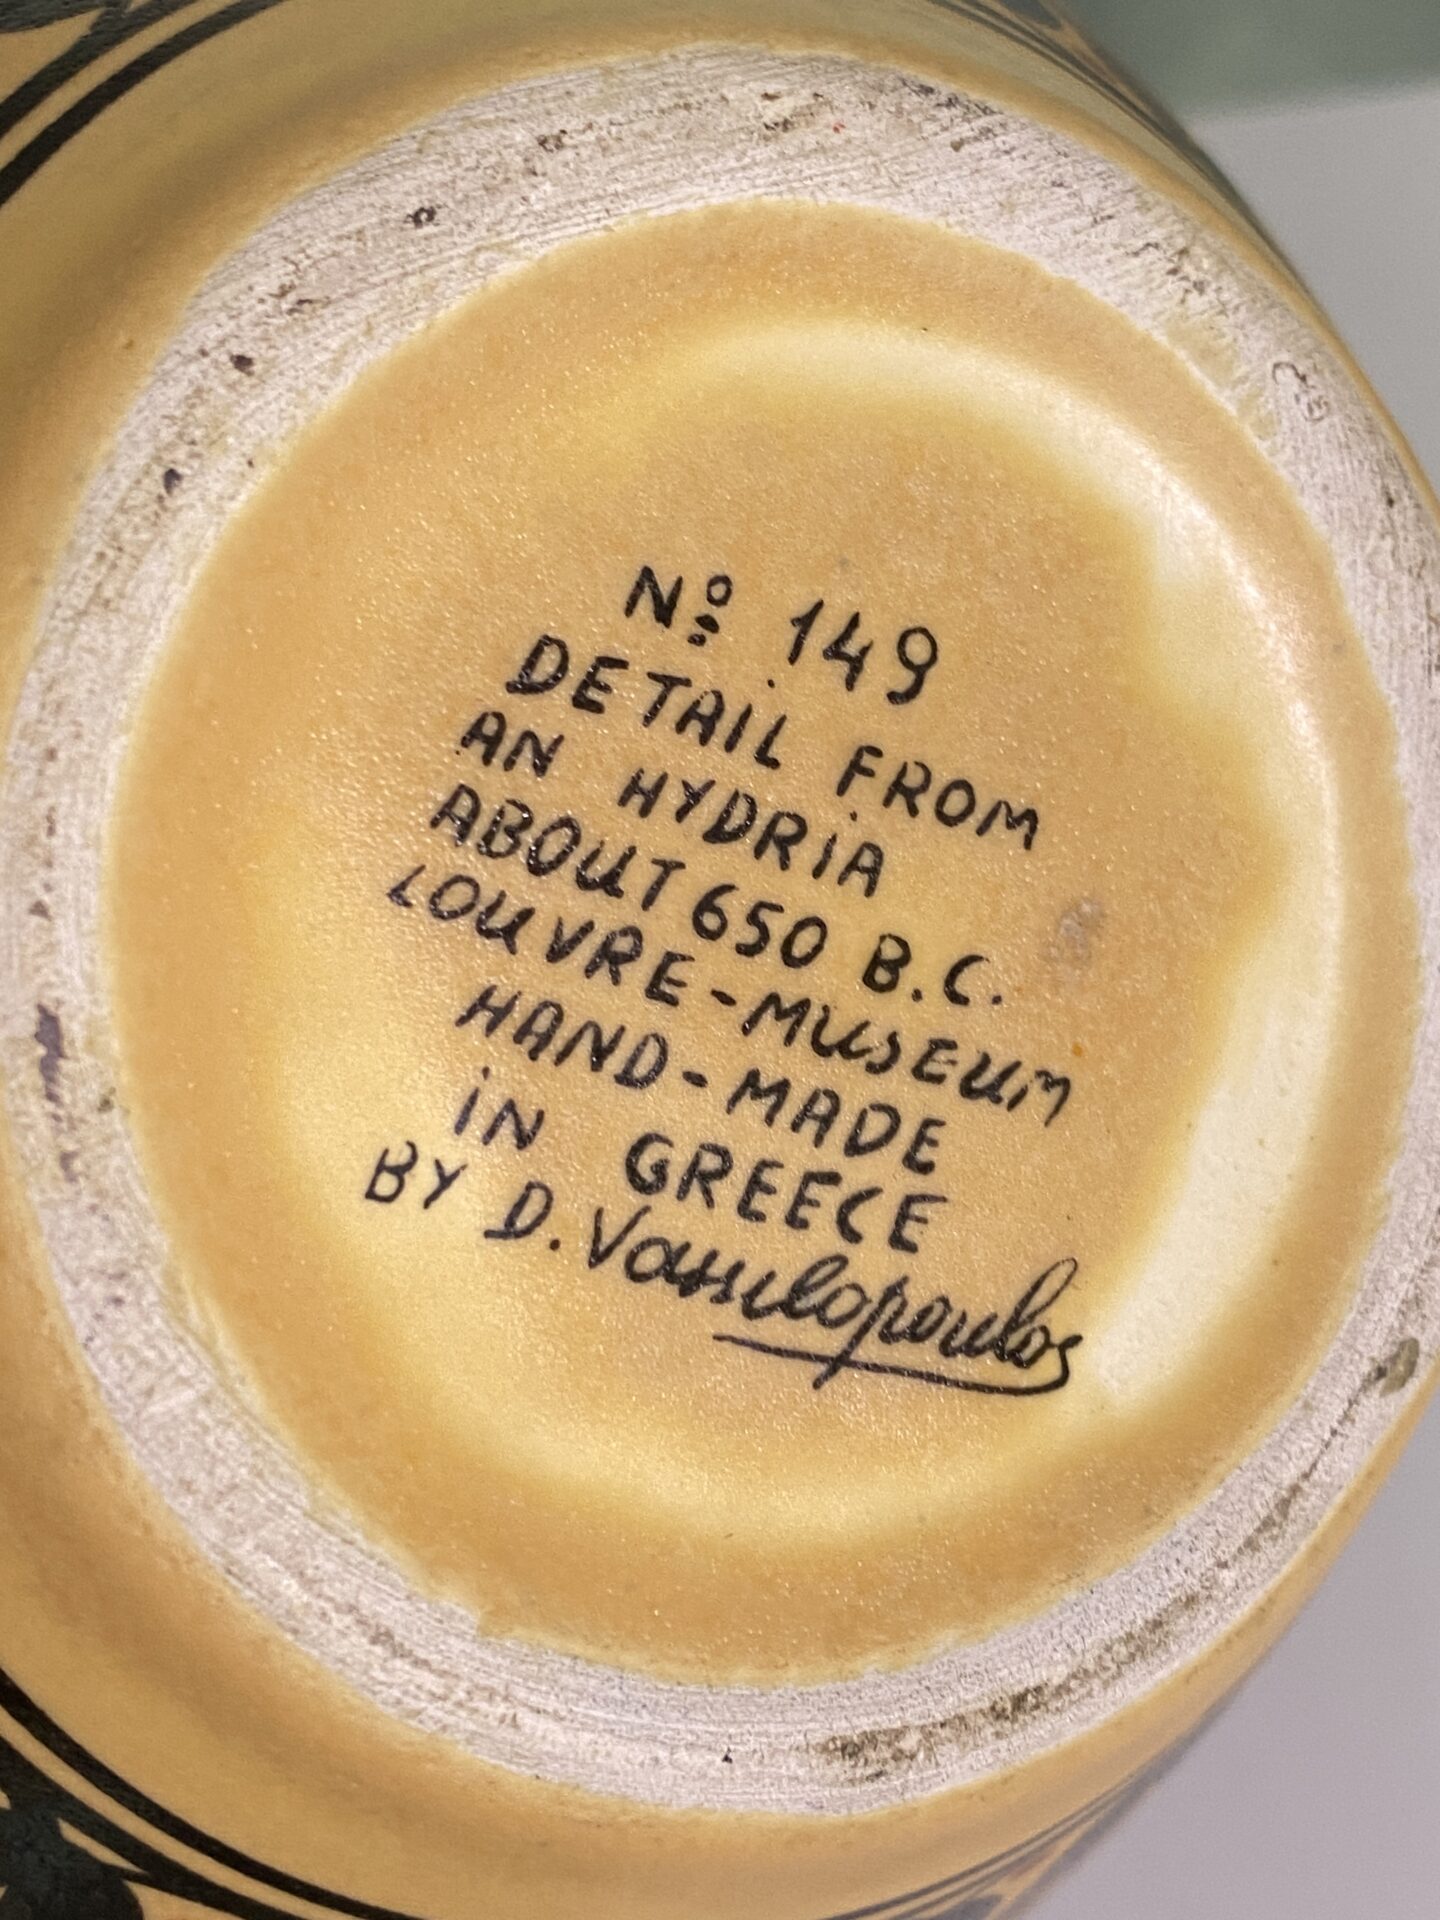 Nº 149
DETAIL FROM
AN HYDRIA
ABOUT 650 B.C.
LOUVRE-MUSEUM
HAND-MADE
IN GREECE
BY D. Vassilopoulos